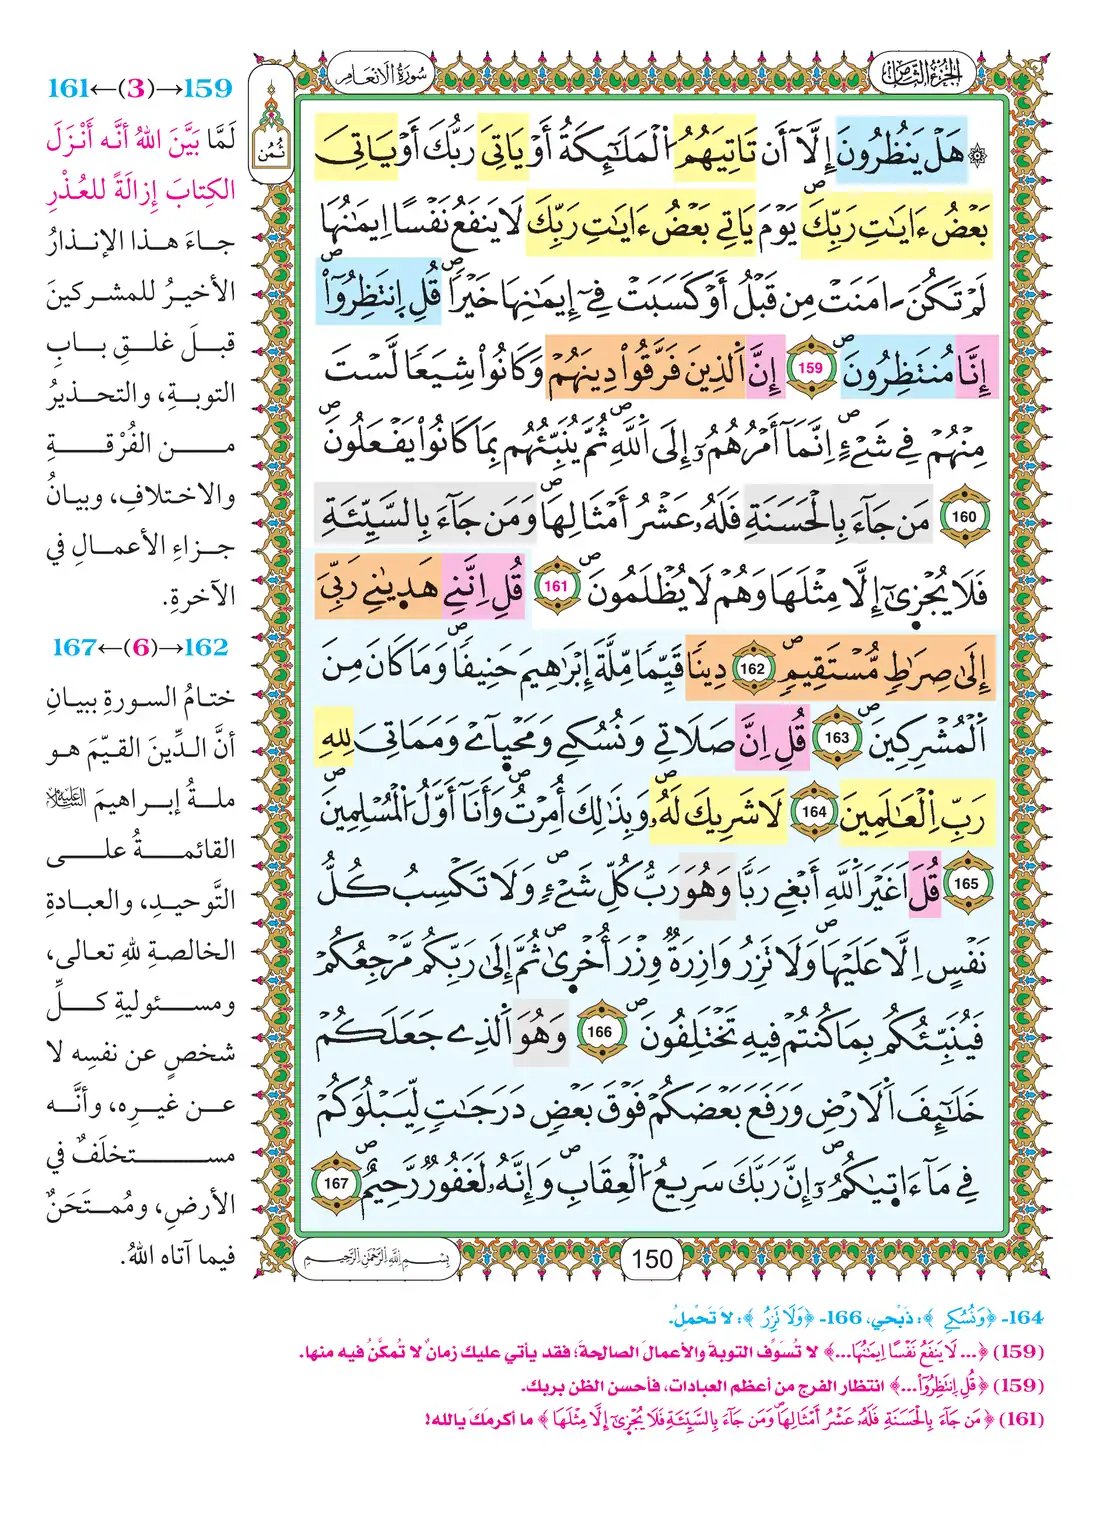 الجزء الثامن
سورة الأنعام
ثمن
هَلْ يَنظُرُونَ إِلَّآ أَن تَاتِيَهُمُ اُ۬لْمَلَٰٓئِكَةُ أَوْ يَاتِيَ رَبُّكَ أَوْ يَاتِيَ
بَعْضُ ءَايَٰتِ رَبِّكَ يَوْمَ يَاتِے بَعْضُ ءَايَٰتِ رَبِّكَ لَا يَنفَعُ نَفْساً اِيمَٰنُهَا
لَمْ تَكُنَ اٰمَنَتْ مِن قَبْلُ أَوْ كَسَبَتْ فِےٓ إِيمَٰنِهَا خَيْراٗ قُلِ اِنتَظِرُوٓاْ
إِنَّا مُنتَظِرُونَ 159 إِنَّ اَ۬لذِينَ فَرَّقُواْ دِينَهُمْ وَكَانُواْ شِيَعاٗ لَّسْتَ
مِنْهُمْ فِے شَےْءٍ اِنَّمَآ أَمْرُهُمُۥٓ إِلَى اَ۬للَّهِ ثُمَّ يُنَبِّئُهُم بِمَا كَانُواْ يَفْعَلُونَ
160 مَن جَآءَ بِالْحَسَنَةِ فَلَهُۥ عَشْرُ أَمْثَالِهَا وَمَن جَآءَ بِالسَّيِّئَةِ
فَلَا يُجْزَىٰٓ إِلَّا مِثْلَهَا وَهُمْ لَا يُظْلَمُونَ 161 قُلِ اِنَّنِے هَدَىٰنِے رَبِّيَ
إِلَىٰ صِرَٰطٖ مُّسْتَقِيمٖ 162 دِيناٗ قَيِّماٗ مِّلَّةَ إِبْرَٰهِيمَ حَنِيفاٗ وَمَا كَانَ مِنَ
اَ۬لْمُشْرِكِينَ 163 قُلِ اِنَّ صَلَاتِے وَنُسُكِے وَمَحْيَآےْ وَمَمَاتِيَ لِلهِ
رَبِّ اِ۬لْعَٰلَمِينَ 164 لَا شَرِيكَ لَهُۥ وَبِذَٰلِكَ أُمِرْتُ وَأَنَآ أَوَّلُ اُ۬لْمُسْلِمِينَ
165 قُلَ اَغَيْرَ اَ۬للَّهِ أَبْغِے رَبّاٗ وَهُوَ رَبُّ كُلِّ شَےْءٖ وَلَا تَكْسِبُ كُلُّ
نَفْسٍ اِلَّا عَلَيْهَا وَلَا تَزِرُ وَازِرَةٞ وِزْرَ أُخْرَىٰ ثُمَّ إِلَىٰ رَبِّكُم مَّرْجِعُكُمْ
فَيُنَبِّئُكُم بِمَا كُنتُمْ فِيهِ تَخْتَلِفُونَ 166 وَهُوَ اَ۬لذِے جَعَلَكُمْ
خَلَٰٓئِفَ اَ۬لَارْضِ وَرَفَعَ بَعْضَكُمْ فَوْقَ بَعْضٖ دَرَجَٰتٖ لِّيَبْلُوَكُمْ
فِے مَآ ءَاتَىٰكُمُۥٓ إِنَّ رَبَّكَ سَرِيعُ اُ۬لْعِقَابِ وَإِنَّهُۥ لَغَفُورٞ رَّحِيمٞ 167
بسم الله الرحمن الرحيم
150
161←(3)→159
لَمَّا بَيَّنَ اللهُ أنَّه أَنْزَلَ
الكِتابَ إزالَةً للعُذْرِ
جاءَ هذا الإنذارُ
الأخيرُ للمشركينَ
قبلَ غلقِ بابِ
التوبةِ، والتحذيرُ
من الفُرْقةِ
والاختلافِ، وبيانُ
جزاءِ الأعمالِ في
الآخرةِ.
167←(6)→162
ختامُ السورةِ ببيانِ
أنَّ الدِّينَ القيّمَ هو
ملةُ إبراهيمَ عليه السلام
القائمةُ على
التَّوحيدِ، والعبادةِ
الخالصةِ للهِ تعالى،
ومسئوليةِ كلِّ
شخصٍ عن نفسِه لا
عن غيرِه، وأنَّه
مستخلَفٌ في
الأرضِ، ومُمتَحَنٌ
فيما آتاه اللهُ.
164- ﴿وَنُسُكِے﴾: ذَبْحِي، 166- ﴿وَلَا تَزِرُ﴾: لا تَحْمِلُ.
(159) ﴿... لَا يَنفَعُ نَفْساً اِيمَٰنُهَا...﴾ لا تُسَوِّف التوبةَ والأعمالَ الصالحةَ؛ فقد يأتي عليك زمانٌ لا تُمكَّنُ فيه منها.
(159) ﴿قُلِ اِنتَظِرُوٓاْ...﴾ انتظار الفرج من أعظم العبادات، فأحسن الظن بربك.
(161) ﴿مَن جَآءَ بِالْحَسَنَةِ فَلَهُۥ عَشْرُ أَمْثَالِهَا وَمَن جَآءَ بِالسَّيِّئَةِ فَلَا يُجْزَىٰٓ إِلَّا مِثْلَهَا﴾ ما أكرمَكَ يا الله!